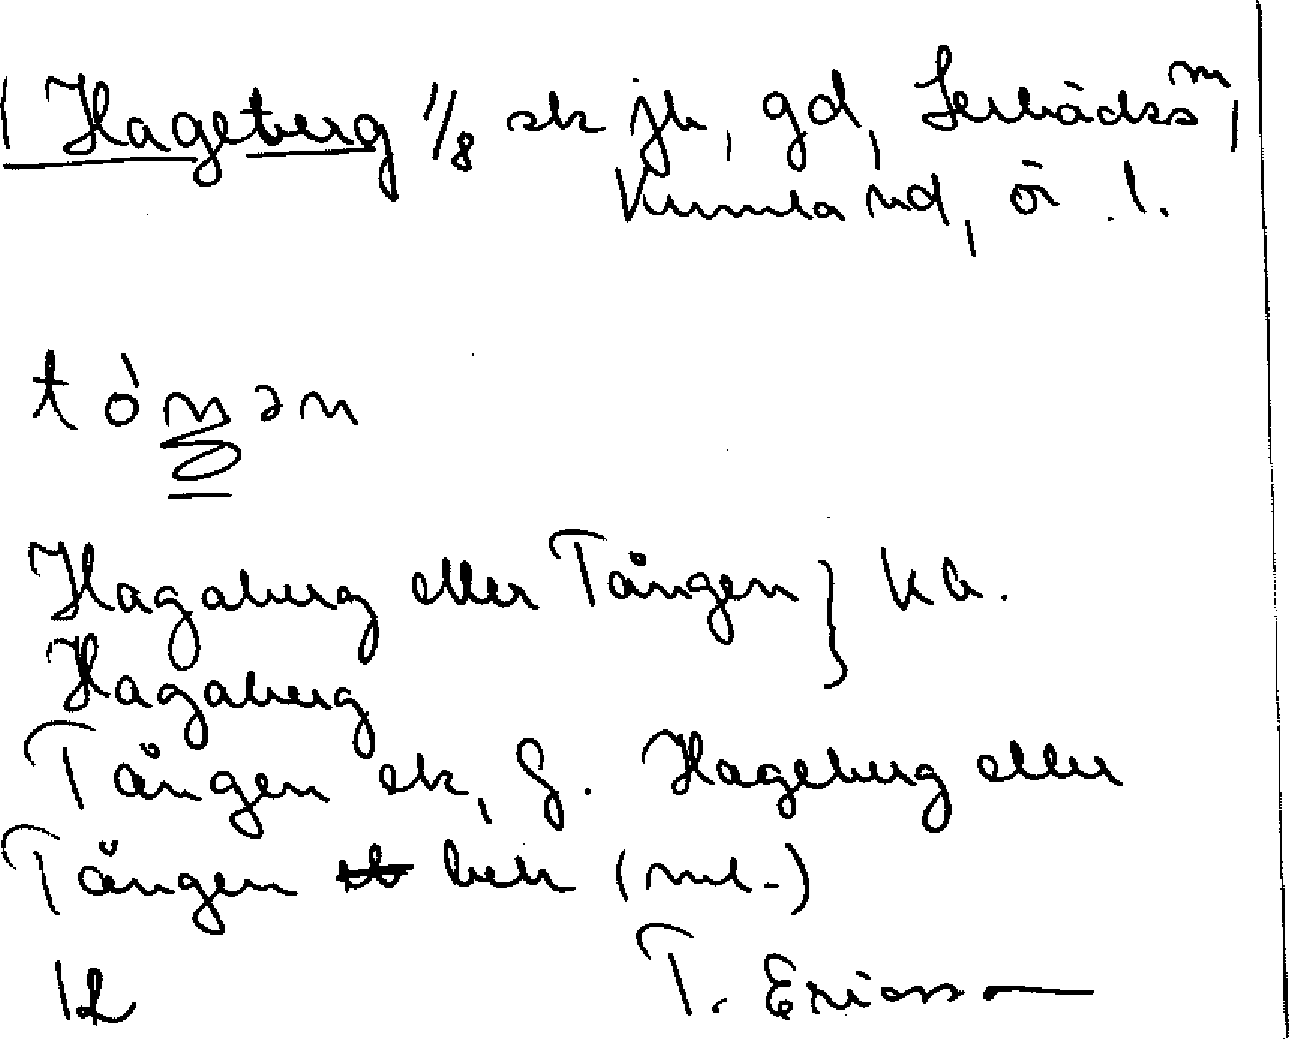 Hageberg 1/8 sk jb, gd, Lerbäcks sn,
Kumla hd, ör. l.
tóŋən
Hagaberg eller Tången } Kb.
Hagaberg
Tången ek, G. Hageberg eller
Tången bebr (ml.)
T. Ericsson